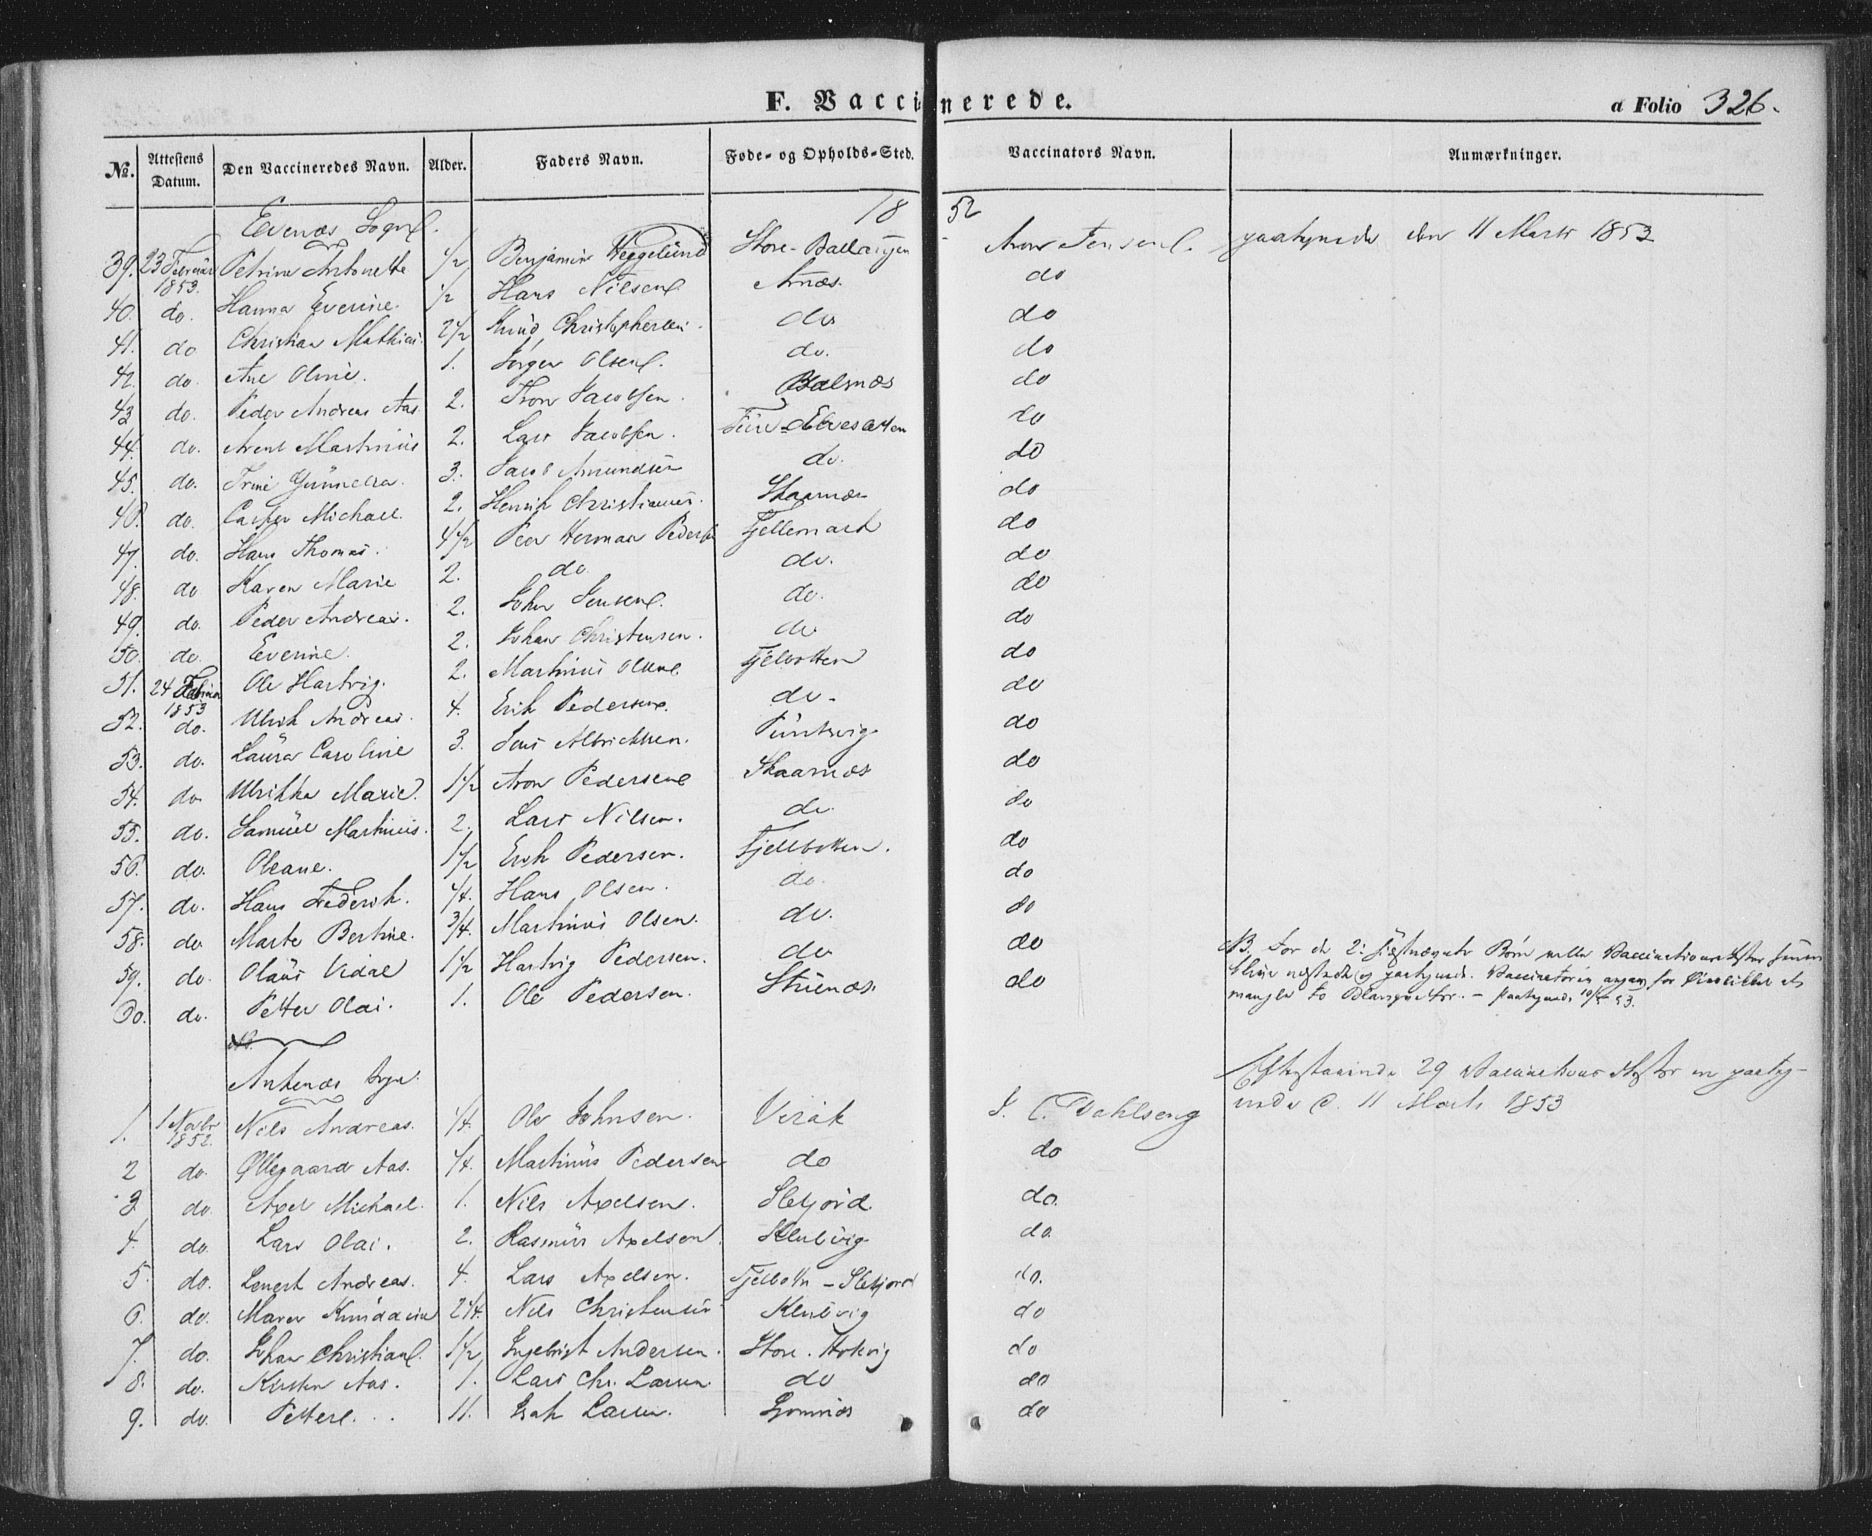 F. Vaccinerede.
a Folio 326.
No. Attestens Datum. Den Vaccineredes Navn. Alder. Faders Navn. Føde- og Opholds-Sted. Vaccinators Navn. Anmærkninger.
Evenæs Sogn. 18 52
39. 23 Februar 1853. Petrine Antonette 1/2 Benjamin Heggelund Store-Ballangen Aron Jensen. paategnede den 11 Marts 1853
40. do. Hanna Everine. 1/2 Hans Nilsen Arnæs. do
41. do Christian Mathias. 2 1/2 Knud Christophersen. do do
42. do. Ane Oline. 1. Jørgen Olsen. do. do
43 do. Peder Andreas Aas. 2. Tron Jacobsen. Balsnæs do
44. do. Arent Martinius 2. Lars Jacobsen. do
45. do. Trine Gunnelia. 3. Jacob Amundsen do. do
46. do. Casper Michael. 2. Henrik Christiansen. Skaarnæs do
47. do. Hans Thomas. 4 1/2 Peer Herman Peders Fjellemark do
48. do Karen Marie 2. do do. do
49. do. Peder Andreas. 2. Johan Jensen. do. do
50. do. Everine. 2. Johan Christensen. do do
51. 24 Februar 1853 Ole Hartvig. 2. Martinus Olsen. Fjelbotten do
52. do. Ulrik Andreas. 4. Erik Pedersen. do. do
53. do. Laura Caroline 3. Jens Albrichtsen. do
54. do Ulrikka Marie. 1 1/2 Aron Pedersen Skaarnæs do
55. do. Samuel Martinus. 2. Lars Nilsen. do. do
56. do. Oleane. 1 1/2 Erik Pedersen. Fjellbotten. do
57. do. Hans Frederik. 1/4. Hans Olsen. do. do
58. do Marte Bertine. 3/4. Martinus Olsen. do. do
59. do. Olaus Vidal 1 1/2 Hartvig Pedersen. do do
60. do. Petter Olai. 1. Ole Pedersen. Stunæs. do
NB. For de 2
mangler to - Paategnede 10/5 53.
Ankenæs Sogn.
29 Vaccinations Attester ere paateg-
nede d. 11 Marts 1853
1. 1 Novbr 1852. Nils Andreas. 1/4. Ole Johnsen. Virak J. C. Dahlseng
2 do. Øllegaard Aas. 1/4. Martinus Pedersen do do
3 do Axel Michael. 1. Nils Axelsen. Sletjord do.
4. do. Lars Olai. 2. Rasmus Axelsen. Klubvig do.
5. do. Lenert Andreas. 4. Lars Axelsen. Fjelbotn - Sletjord do.
6. do. Maren 2 1/4. Nils Christensen Klubvig do
7. do. Johan Christian. 1 1/2 Ingebrigt Andersen. Store. do
8. do. Kirsten Aas. 1. Lars Chr. Larsen. do do
9. do. Petter. 11. Isak Larsen. do